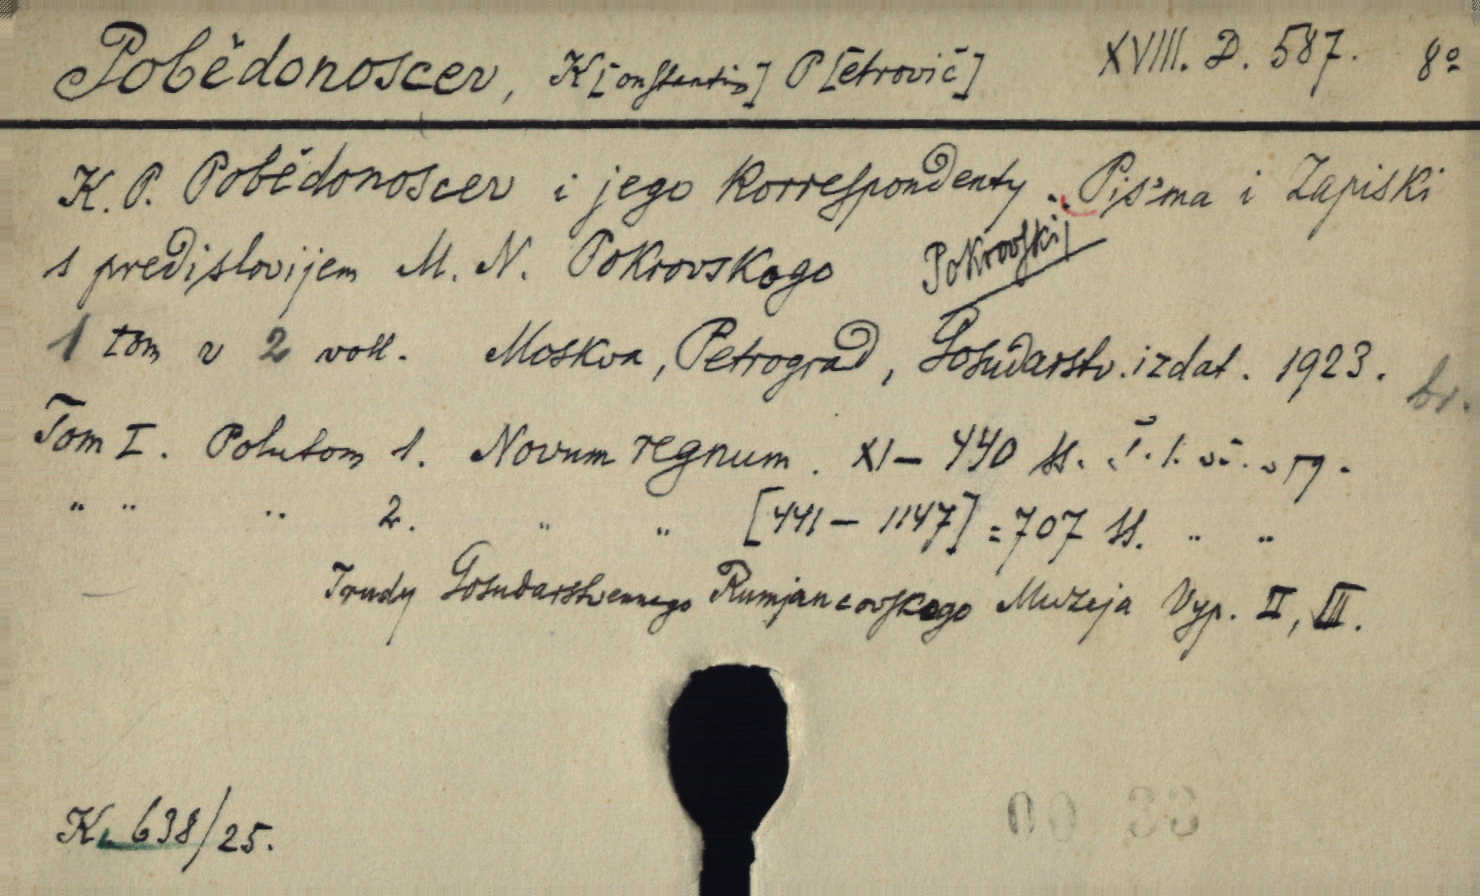 Pobědonoscev, K[onstantin] P[etrovič] XVIII. D. 587. 8º
K. P. Pobědonoscev i jego Korrespondenty. Piśma i Zapiski
s predislovijem M. N. Pokrovskogo Pokrovskij
1 tom v 2 voll. Moskva, Petrograd, Gosudarstv. izdat. 1923. br.
Tom I. Polutom 1. Novum regnum. XI - 440 ss.
" " " 2. " " [441 - 1147] = 707 ss. " "
Trudy Gosudarstvennago Rumjancovskogo Muzeja Vyp. II, III.
K. 638/25.